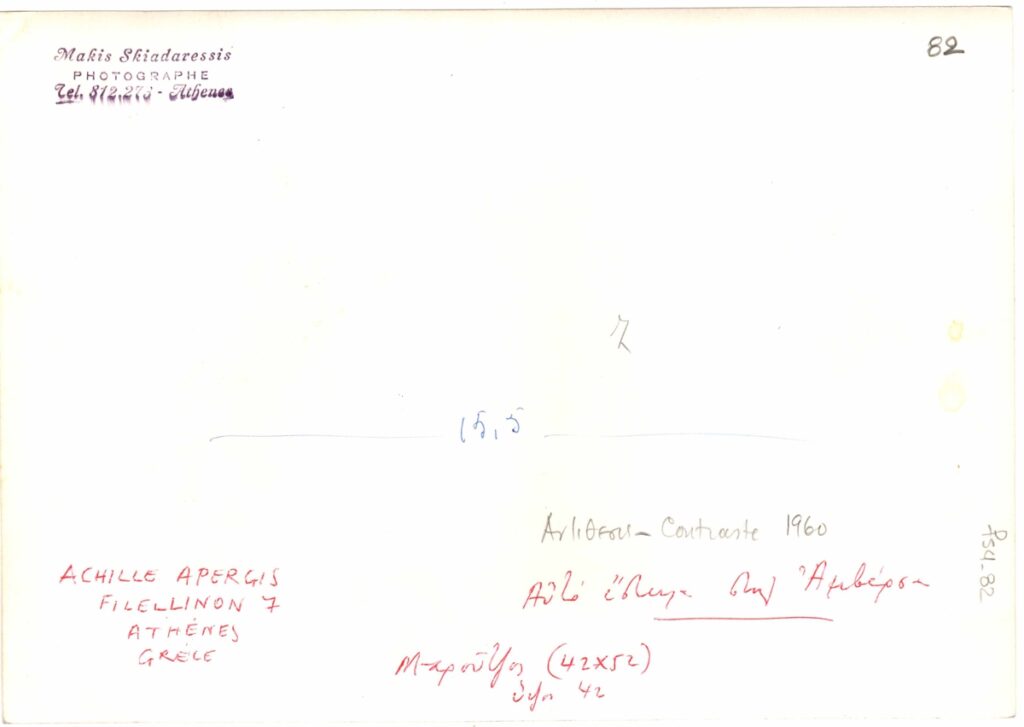 Makis Skiadaressis
PHOTOGRAPHE
Tel. 812.273 - Athenes
82
7
15,5
Αντιθεση - Contraste 1960
Αὐτό ἔστειλα στην Ἀμβέρσα
ACHILLE APERGIS
FILELLINON 7
ATHÉNES
GRÈCE
Μπροῦτζος (42x52)
ὕψος 42
P54-82